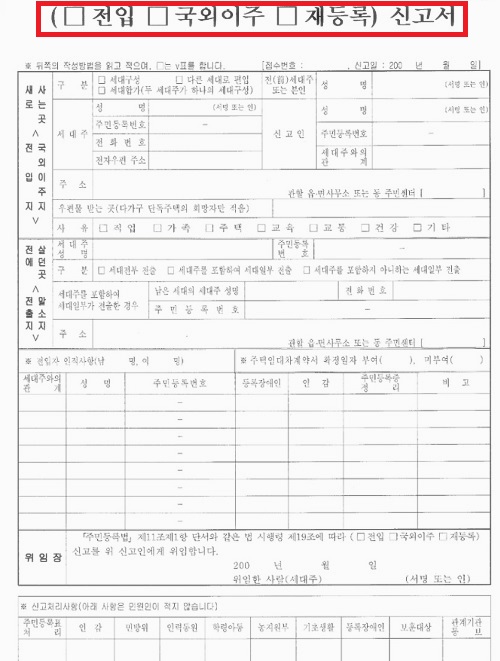 (□ 전입 □ 국외이주 □ 재등록) 신고서
※ 뒤쪽의 작성방법을 읽고 적으며, □는 v표를 합니다. [접수번호 : , 신고일 : 200 년 월 일]
새로 사는 곳 <전입지 국외이주지>
구 분 □ 세대구성 □ 다른 세대로 편입
□ 세대합가(두 세대주가 하나의 세대구성)
전(前)세대주 또는 본인 성 명 (서명 또는 인)
세대주 성 명 (서명 또는 인)
주민등록번호 –
전 화 번 호
전자우편 주소
신 고 인 성 명 (서명 또는 인)
주민등록번호 –
세대주와의 관 계
주 소 관할 읍·면사무소 또는 동 주민센터 [ ]
우편물 받는 곳(다가구 단독주택의 희망자만 적음)
사 유 □ 직 업 □ 가 족 □ 주 택 □ 교 육 □ 교 통 □ 건 강 □ 기 타
전에 살던 곳 <전출지 말소지>
세 대 주 성 명 주민등록 번 호 –
구 분 □ 세대전부 전출 □ 세대주를 포함하여 세대일부 전출 □ 세대주를 포함하지 아니하는 세대일부 전출
세대주를 포함하여 세대일부가 전출한 경우 남은 세대의 세대주 성명 전 화 번 호
주 민 등 록 번 호 –
주 소 관할 읍·면사무소 또는 동 주민센터 [ ]
※ 전입자 인적사항(남 명, 여 명) ※ 주택임대차계약서 확정일자 부여( ), 미부여( )
세대주와의 관 계 성 명 주민등록번호 등록장애인 인 감 주민등록증 정 리 비 고
–
–
–
–
–
–
–
–
위 임 장
「주민등록법」 제11조제1항 단서와 같은 법 시행령 제19조에 따라 ( □ 전입 □ 국외이주 □ 재등록)
신고를 위 신고인에게 위임합니다.
200 년 월 일
위임한 사람(세대주) (서명 또는 인)
※ 신고처리사항(아래 사항은 민원인이 적지 않습니다)
주민등록표 처 리 인 감 민방위 인력동원 취학아동 농지원부 기초생활 등록장애인 보훈대상 관계기관 통 보